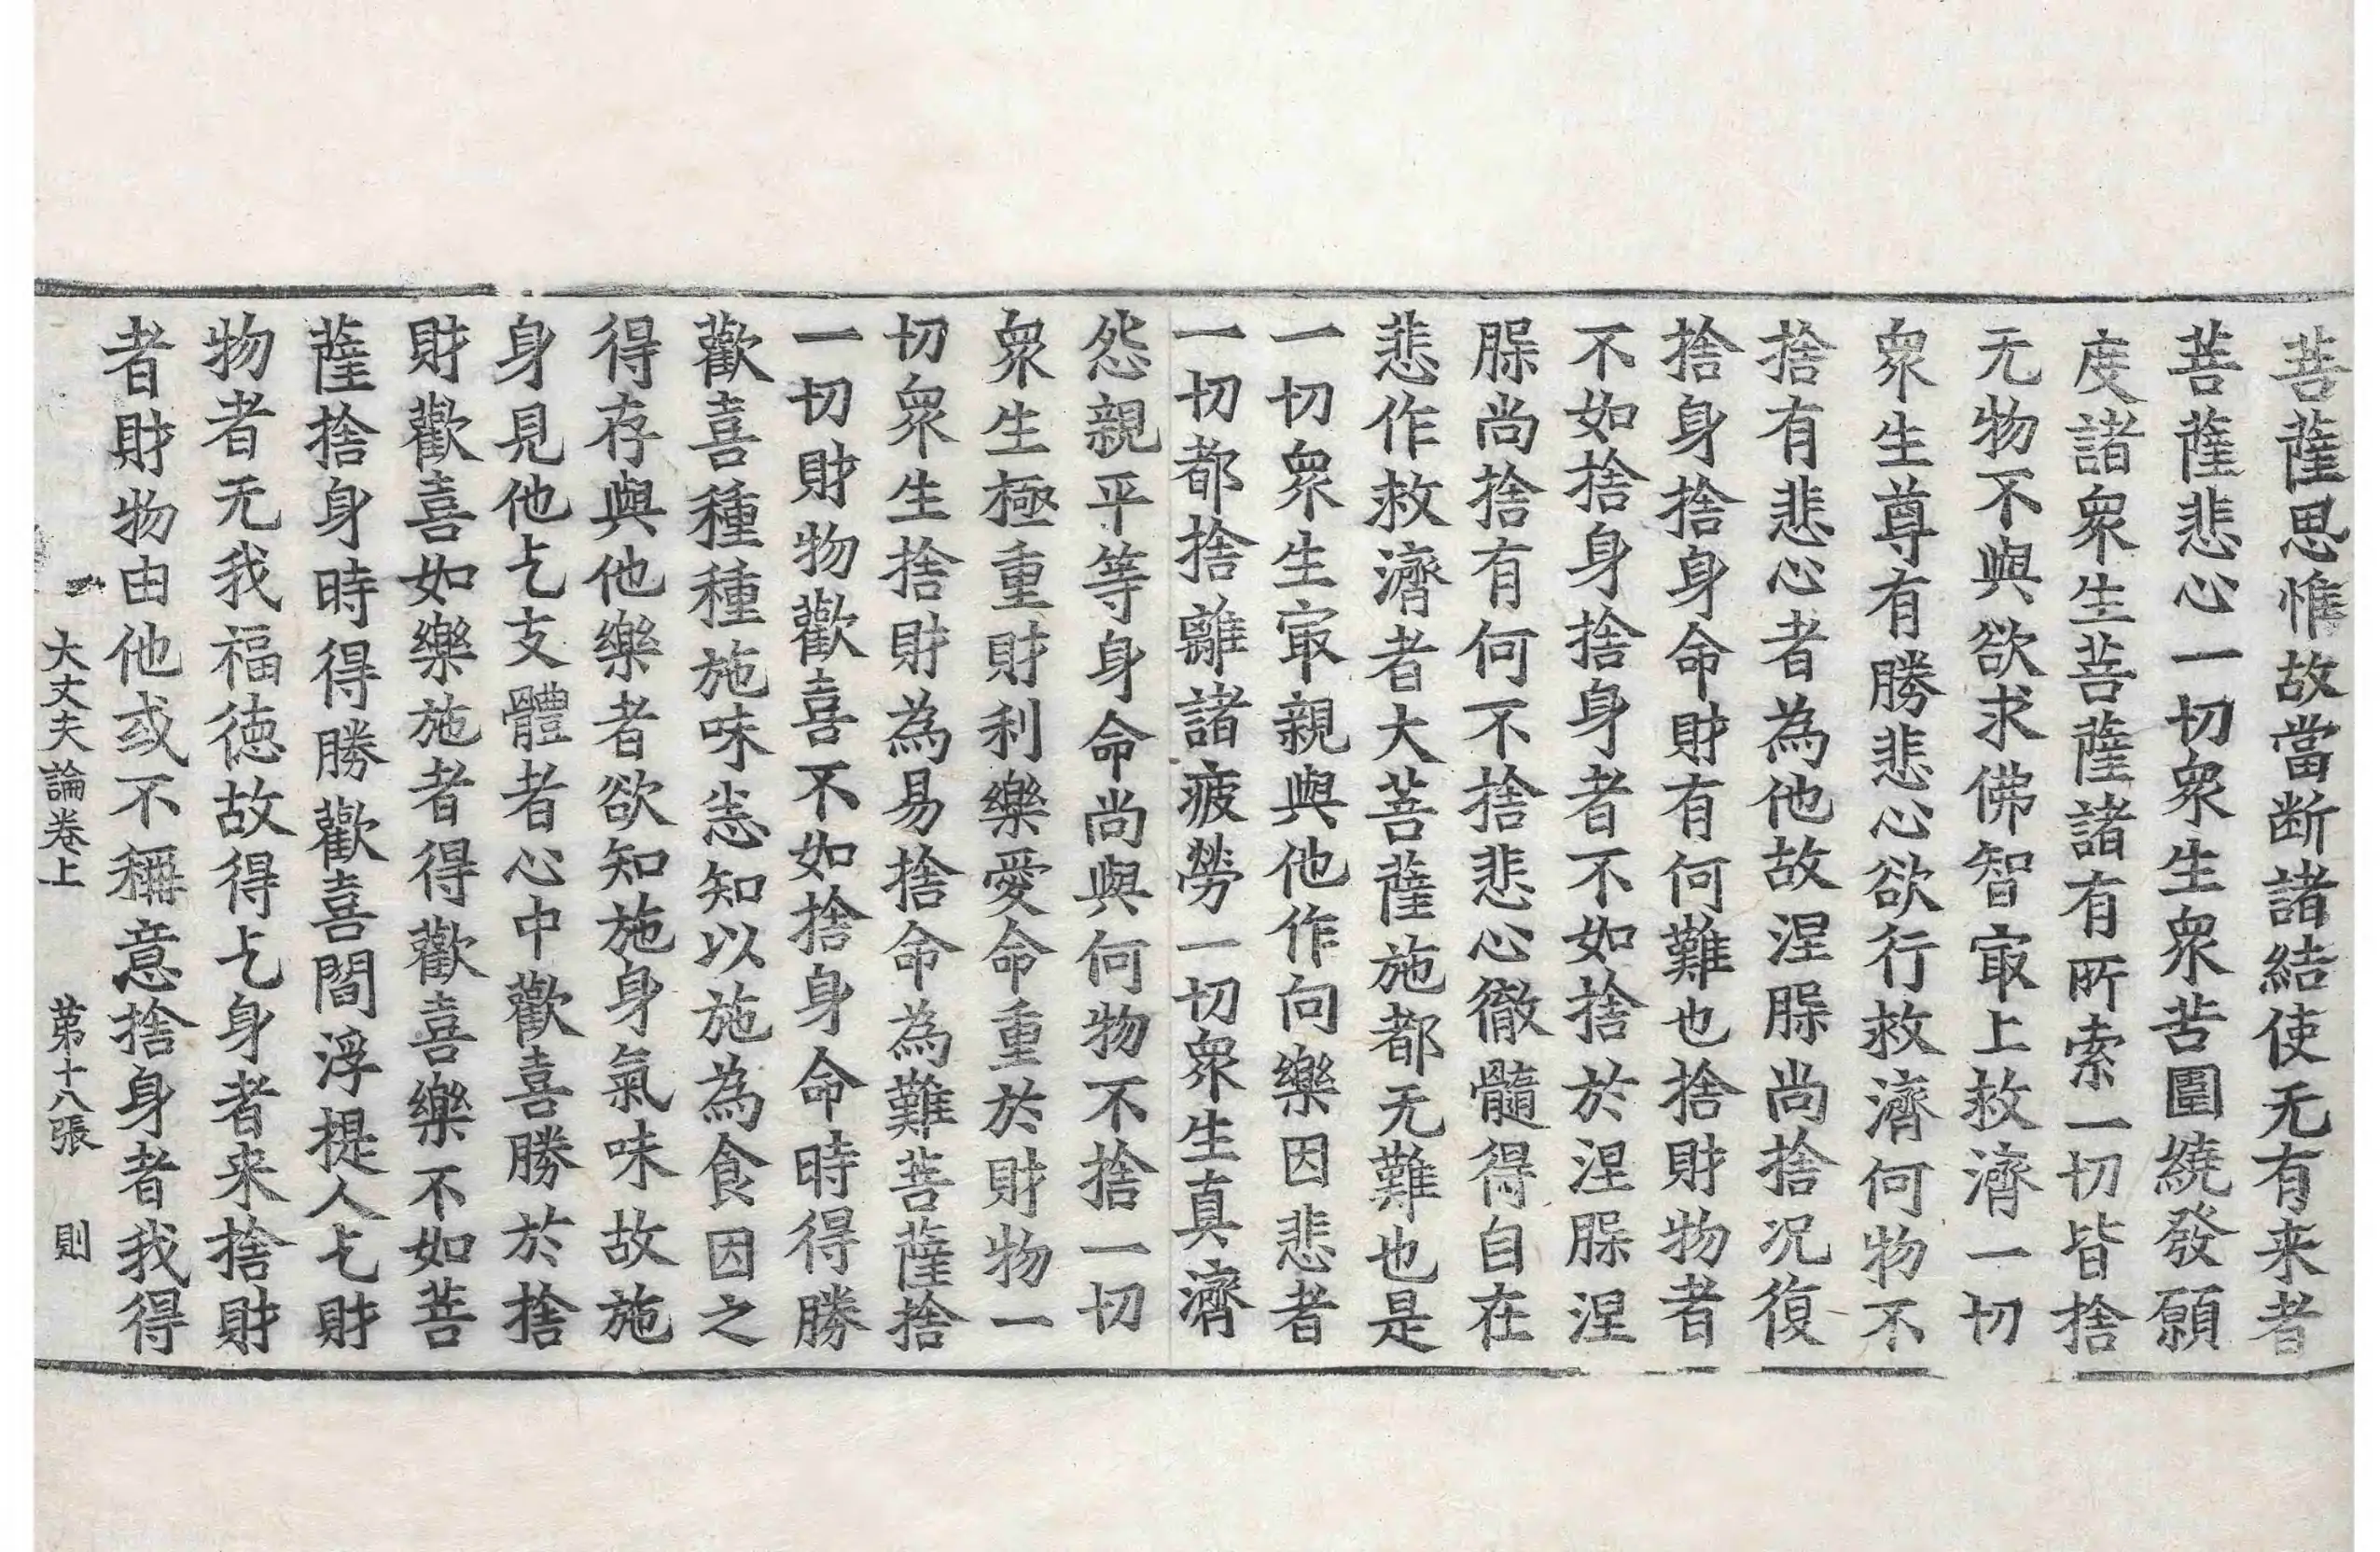 菩薩思惟故當断諸結使无有来者
菩薩悲心一切衆生衆苦圍繞發願
度諸衆生菩薩諸有所索一切皆捨
无物不與欲求佛智㝡上救濟一切
衆生尊有勝悲心欲行救濟何物不
捨有悲心者為他故涅槃尚捨況復
捨身捨身命財有何難也捨財物者
不如捨身捨身者不如捨於涅槃涅
槃尚捨有何不捨悲心徹髓得自在
悲作救濟者大菩薩施都无難也是
一切衆生㝡親與他作向樂因悲者
一切都捨離諸疲勞一切衆生真濟
怨親平等身命尚與何物不捨一切
衆生極重財利樂愛命重於財物一
切衆生捨財為易捨命為難菩薩捨
一切財物歡喜不如捨身命時得勝
歡喜種種施味恙知以施為食因之
得存與他樂者欲知施身氣味故施
身見他乞支體者心中歡喜勝於捨
財歡喜如樂施者得歡喜樂不如菩
薩捨身時得勝歡喜閻浮提人乞財
物者无我福徳故得乞身者来捨財
者財物由他或不稱意捨身者我得
大丈夫論卷上 苐十八張 則